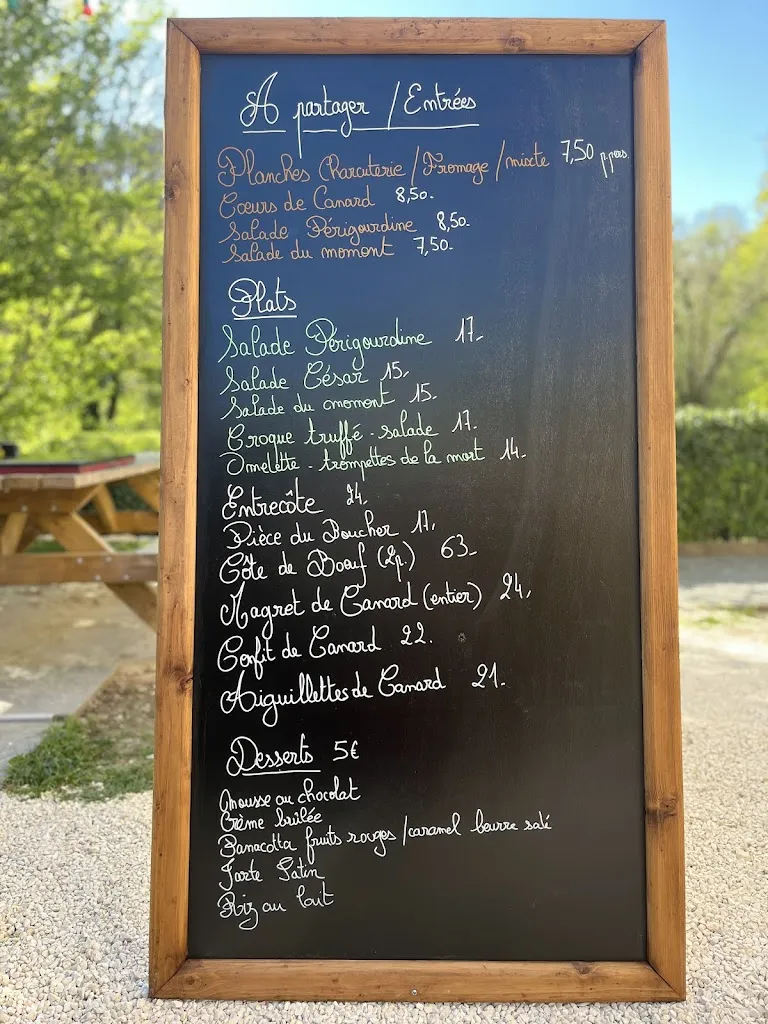 A partager / Entrées
Planches Charcuterie / Fromage / mixte 7,50 p.pers.
Cœurs de Canard 8,50.
Salade Périgourdine 8,50.
Salade du moment 7,50.
Plats
Salade Périgourdine 17.
Salade César 15.
Salade du moment 15.
Croque truffé - salade 17.
Omelette - trompettes de la mort 14.
Entrecôte 24.
Pièce du Boucher 17.
Côte de Boeuf (2p.) 63.
Magret de Canard (entier) 24.
Confit de Canard 22.
Aiguillettes de Canard 21.
Desserts 5€
Mousse au chocolat
Crème brûlée
Panacotta fruits rouges / caramel beurre salé
Tarte Tatin
Riz au lait